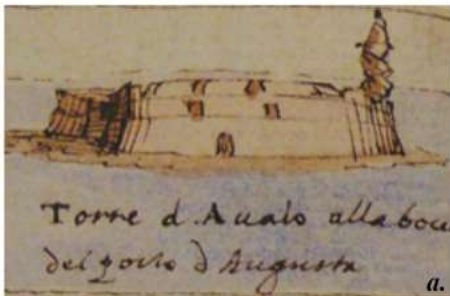 Torre d Aualo alla boc
del porto d Augusta
a.